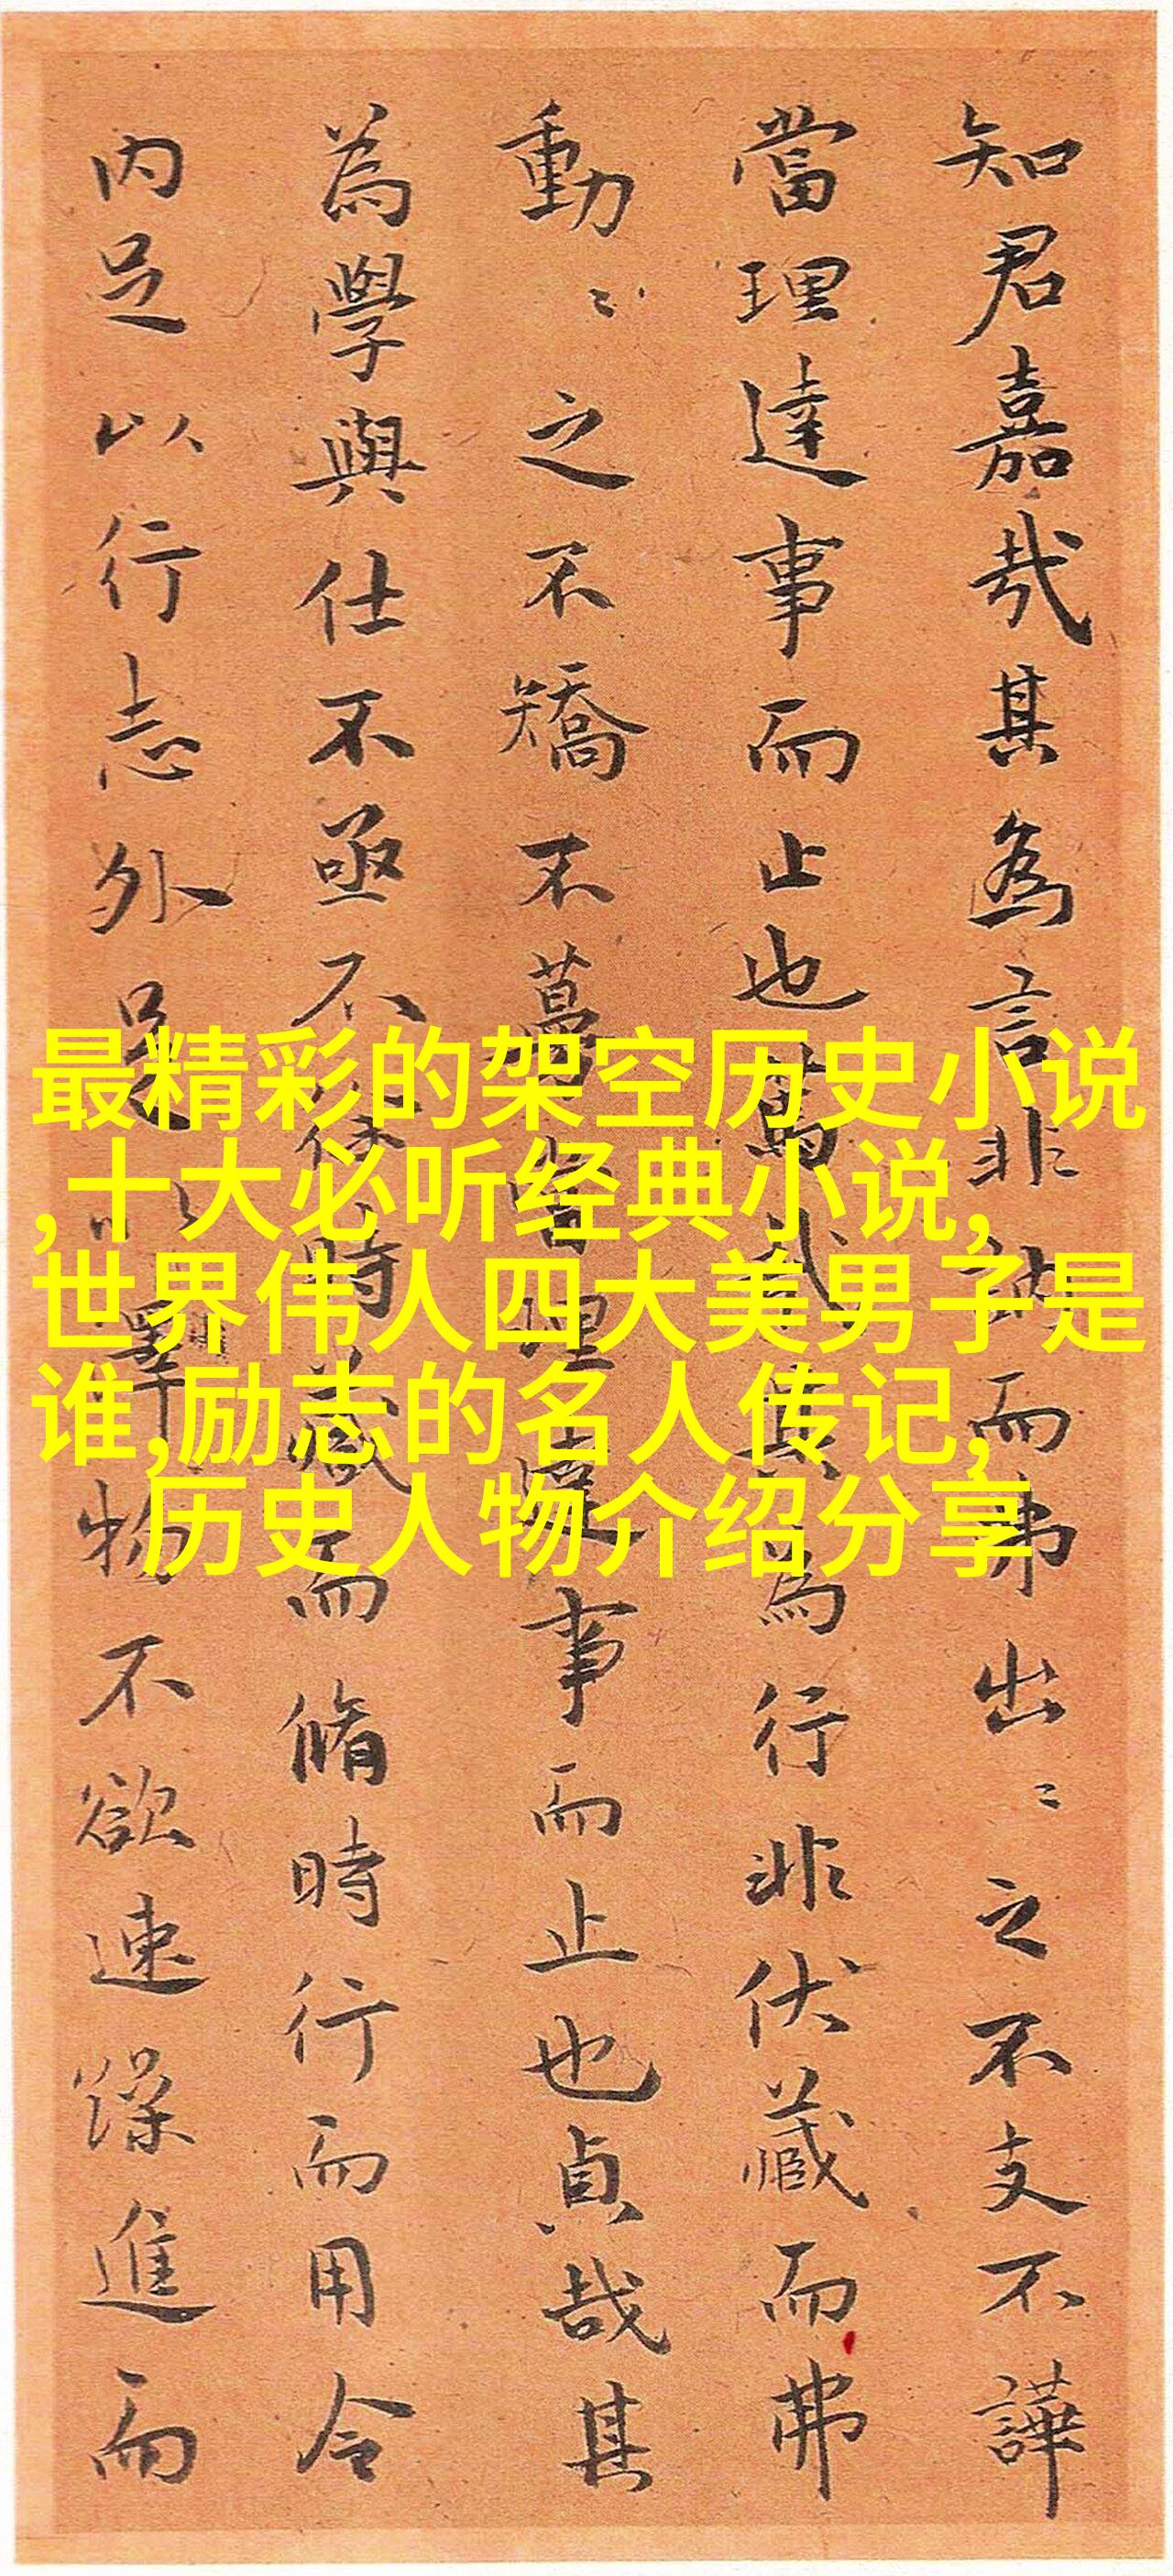 知君嘉哉其為言非訥而弗出々之不支不譁
當理達事而止也篤哉其為行非伏藏而弗
動々之不矯不蔓當理達事而止也貞哉其
為學與仕不亟不時藏而脩時行而用令
内足以行志外足以澤物不欲速躁進而
最精彩的架空历史小说
,十大必听经典小说,
世界伟人四大美男子是
谁,励志的名人传记,
历史人物介绍分享